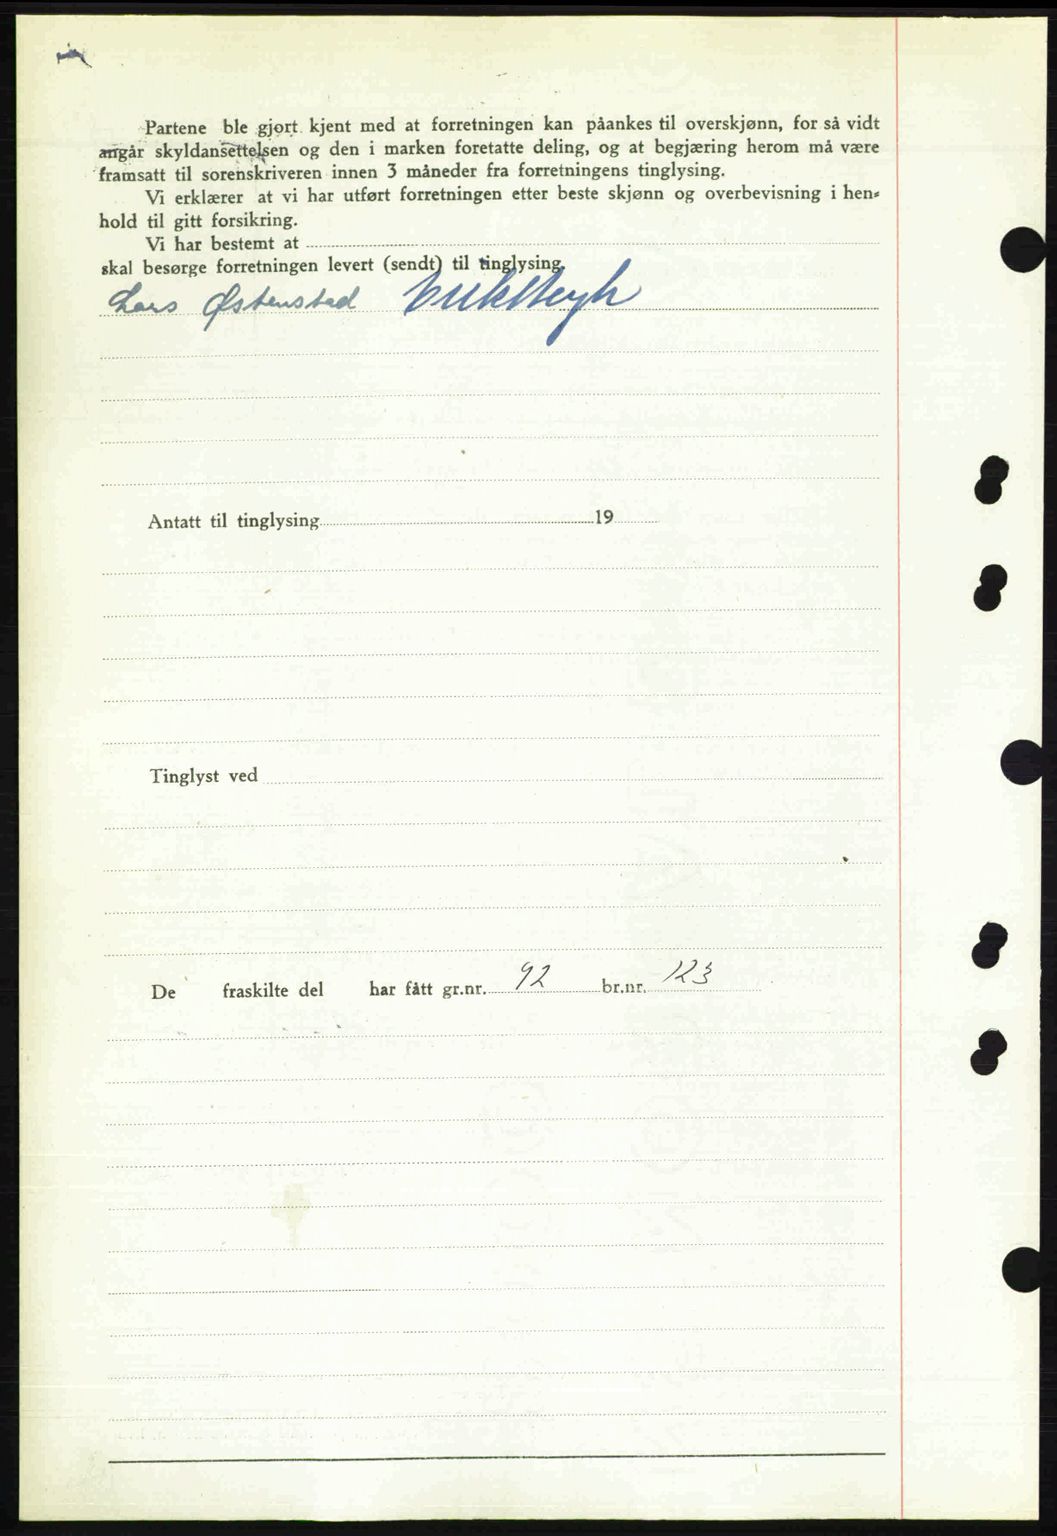 Partene ble gjort kjent med at forretningen kan påankes til overskjønn, for så vidt
angår skyldansettelsen og den i marken foretatte deling, og at begjæring herom må være
framsatt til sorenskriveren innen 3 måneder fra forretningens tinglysing.
Vi erklærer at vi har utført forretningen etter beste skjønn og overbevisning i hen-
hold til gitt forsikring.
Vi har bestemt at
skal besørge forretningen levert (sendt) til tinglysing.
Lars Østenstad
Antatt til tinglysing 19
Tinglyst ved
De fraskilte del har fått gr.nr. 92 br.nr. 123